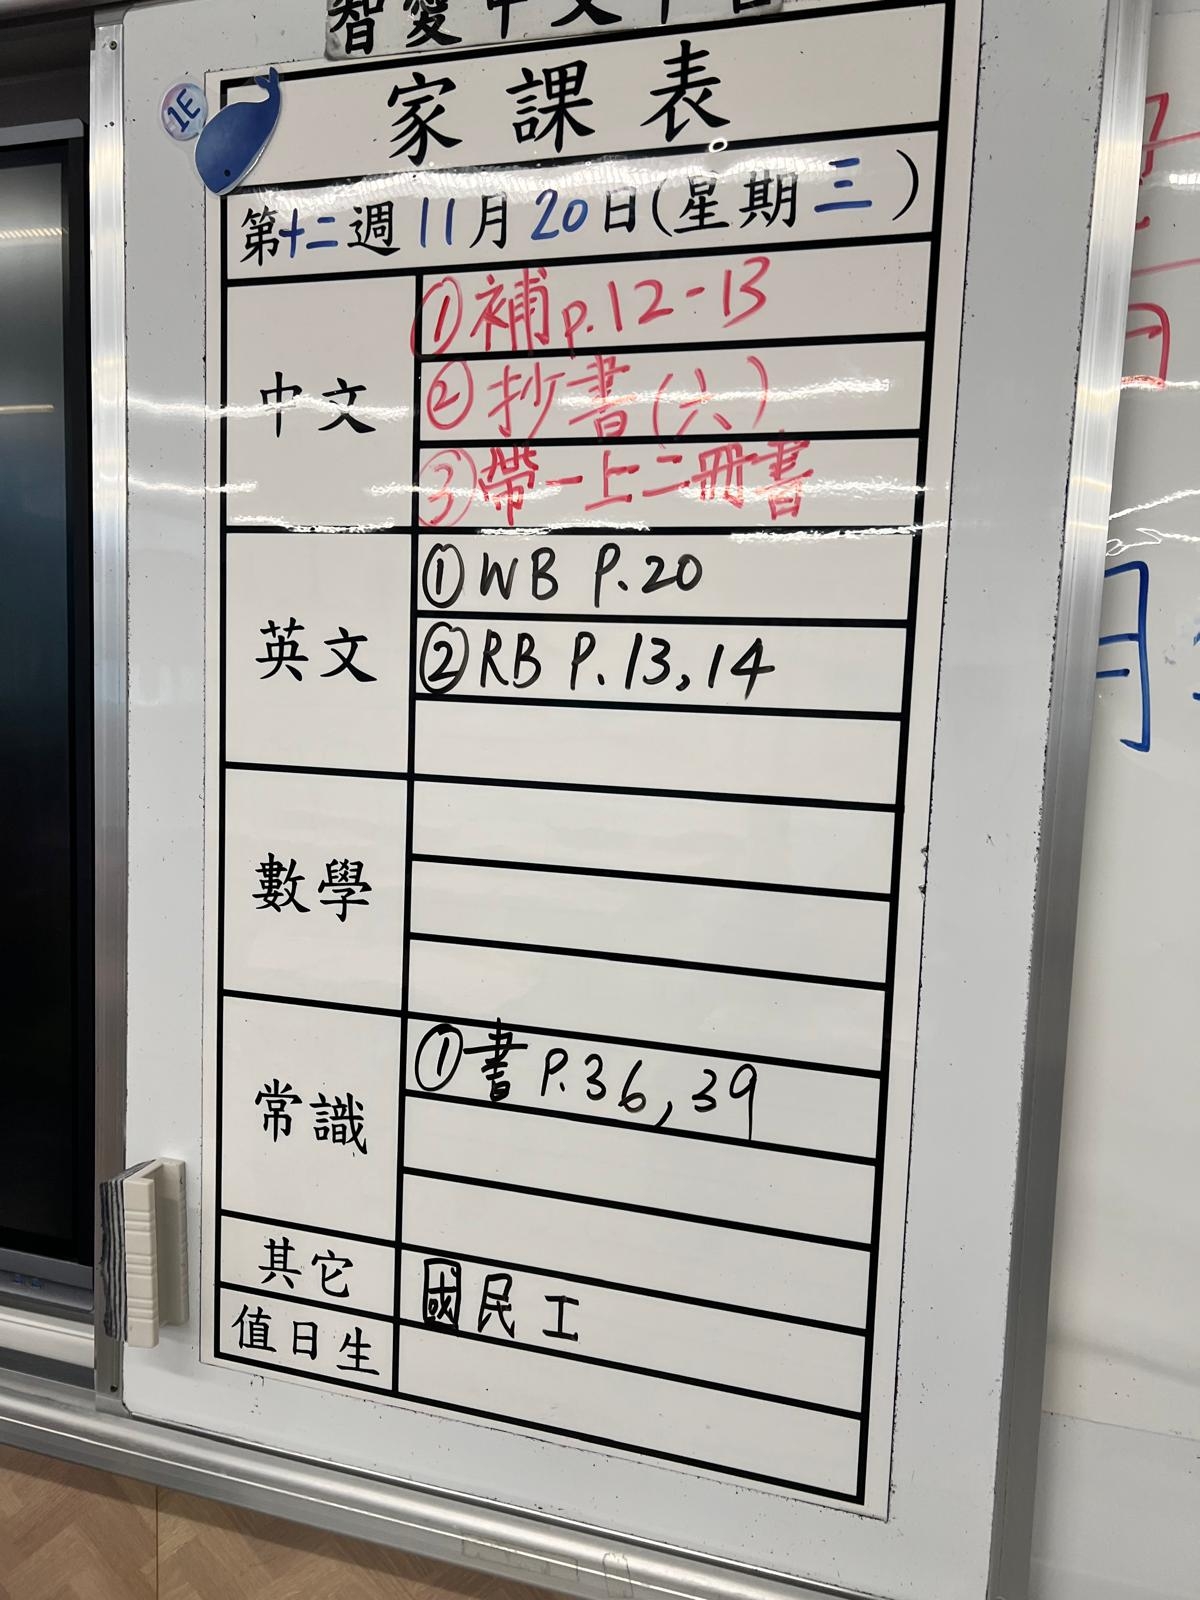 智愛中文平台
1E
家課表
第十二週11月20日(星期三)
中文
①補p.12-13
②抄書(六)
③帶一上二冊書
英文
①WB P.20
②RB P.13,14
數學
常識
①書P.36,39
其它
國民工
值日生